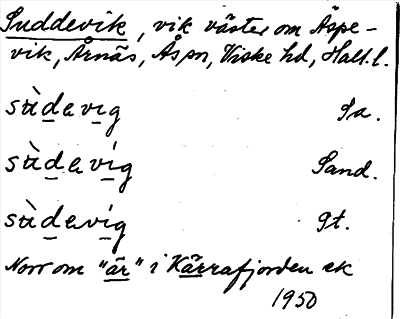 Suddevik, vik väster om Äspe-
vik, Årnäs, Ås sn, Viske hd, Hall. l.
sùdevig Sa.
sùdevíg Sand.
sùdevíg St.
Norr om "är" i Kärrafjorden ek
1950